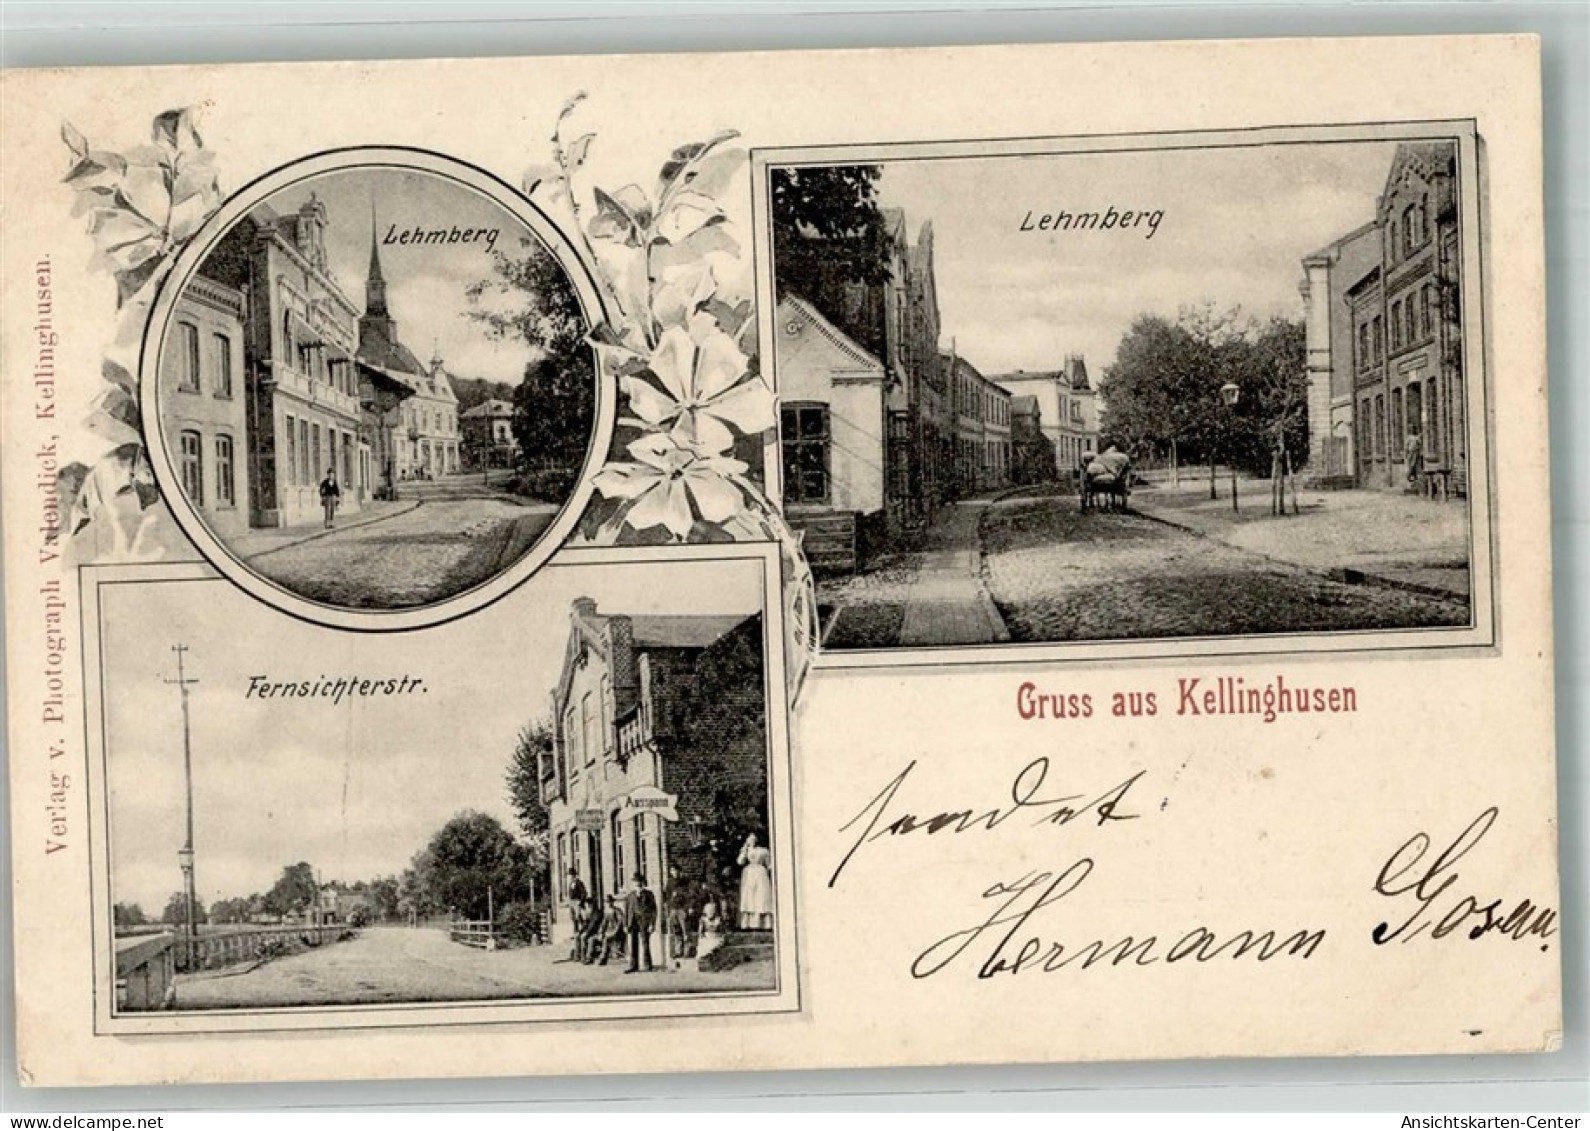 Lehmberg
Lehmberg
Fernsichterstr.
Ausspann
Gruss aus Kellinghusen
sendet
Hermann Gosau.
Verlag v. Photograph Valendick, Kellinghusen.
oldthing.de
Ansichtskarten-Center